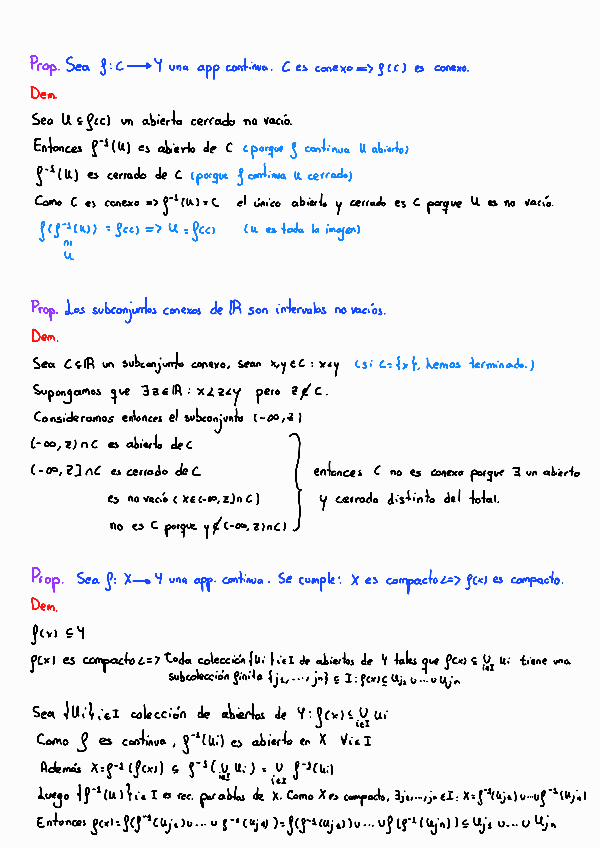 Prop. Sea f: C → Y una app continua. C es conexo => f(C) es conexo.
Dem.
Sea U ⊆ f(C) un abierto cerrado no vació.
Entonces f⁻¹(U) es abierto de C (porque f continua U abierto)
f⁻¹(U) es cerrado de C (porque f continua U cerrado)
Como C es conexo => f⁻¹(U) = C el único abierto y cerrado es C porque U es no vació.
f(f⁻¹(U)) = f(C) => U = f(C) (U es toda la imagen)
∩|
U
Prop. Los subconjuntos conexos de ℝ son intervalos no vacíos.
Dem.
Sea C ⊆ ℝ un subconjunto conexo, sean x,y ∈ C : x<y (si C={x}, hemos terminado.)
Supongamos que ∃ z ∈ ℝ : x<z<y pero z ∉ C.
Consideramos entonces el subconjunto (-∞, z)
(-∞, z) ∩ C es abierto de C
(-∞, z] ∩ C es cerrado de C entonces C no es conexo porque ∃ un abierto
es no vació (x ∈ (-∞, z) ∩ C) y cerrado distinto del total.
no es C porque y ∉ (-∞, z) ∩ C)
Prop. Sea f: X → Y una app. continua. Se cumple: X es compacto <=> f(X) es compacto.
Dem.
f(X) ⊆ Y
f(X) es compacto <=> Toda colección {Ui} i∈I de abiertos de Y tales que f(X) ⊆ ∪ i∈I Ui tiene una
subcolección finita {j₁, ..., jn} ⊆ I : f(X) ⊆ Uj₁ ∪ ... ∪ Ujn
Sea {Ui} i∈I colección de abiertos de Y : f(X) ⊆ ∪ i∈I Ui
Como f es continua, f⁻¹(Ui) es abierto en X ∀ i∈I
Además X = f⁻¹(f(X)) ⊆ f⁻¹(∪ i∈I Ui) = ∪ i∈I f⁻¹(Ui)
Luego {f⁻¹(U)} i∈I es rec. por abtos de X. Como X es compacto, ∃ j₁, ..., jn ∈ I : X = f⁻¹(Uj₁) ∪ ... ∪ f⁻¹(Ujn)
Entonces f(X) = f(f⁻¹(Uj₁) ∪ ... ∪ f⁻¹(Ujn)) = f(f⁻¹(Uj₁)) ∪ ... ∪ f(f⁻¹(Ujn)) ⊆ Uj₁ ∪ ... ∪ Ujn